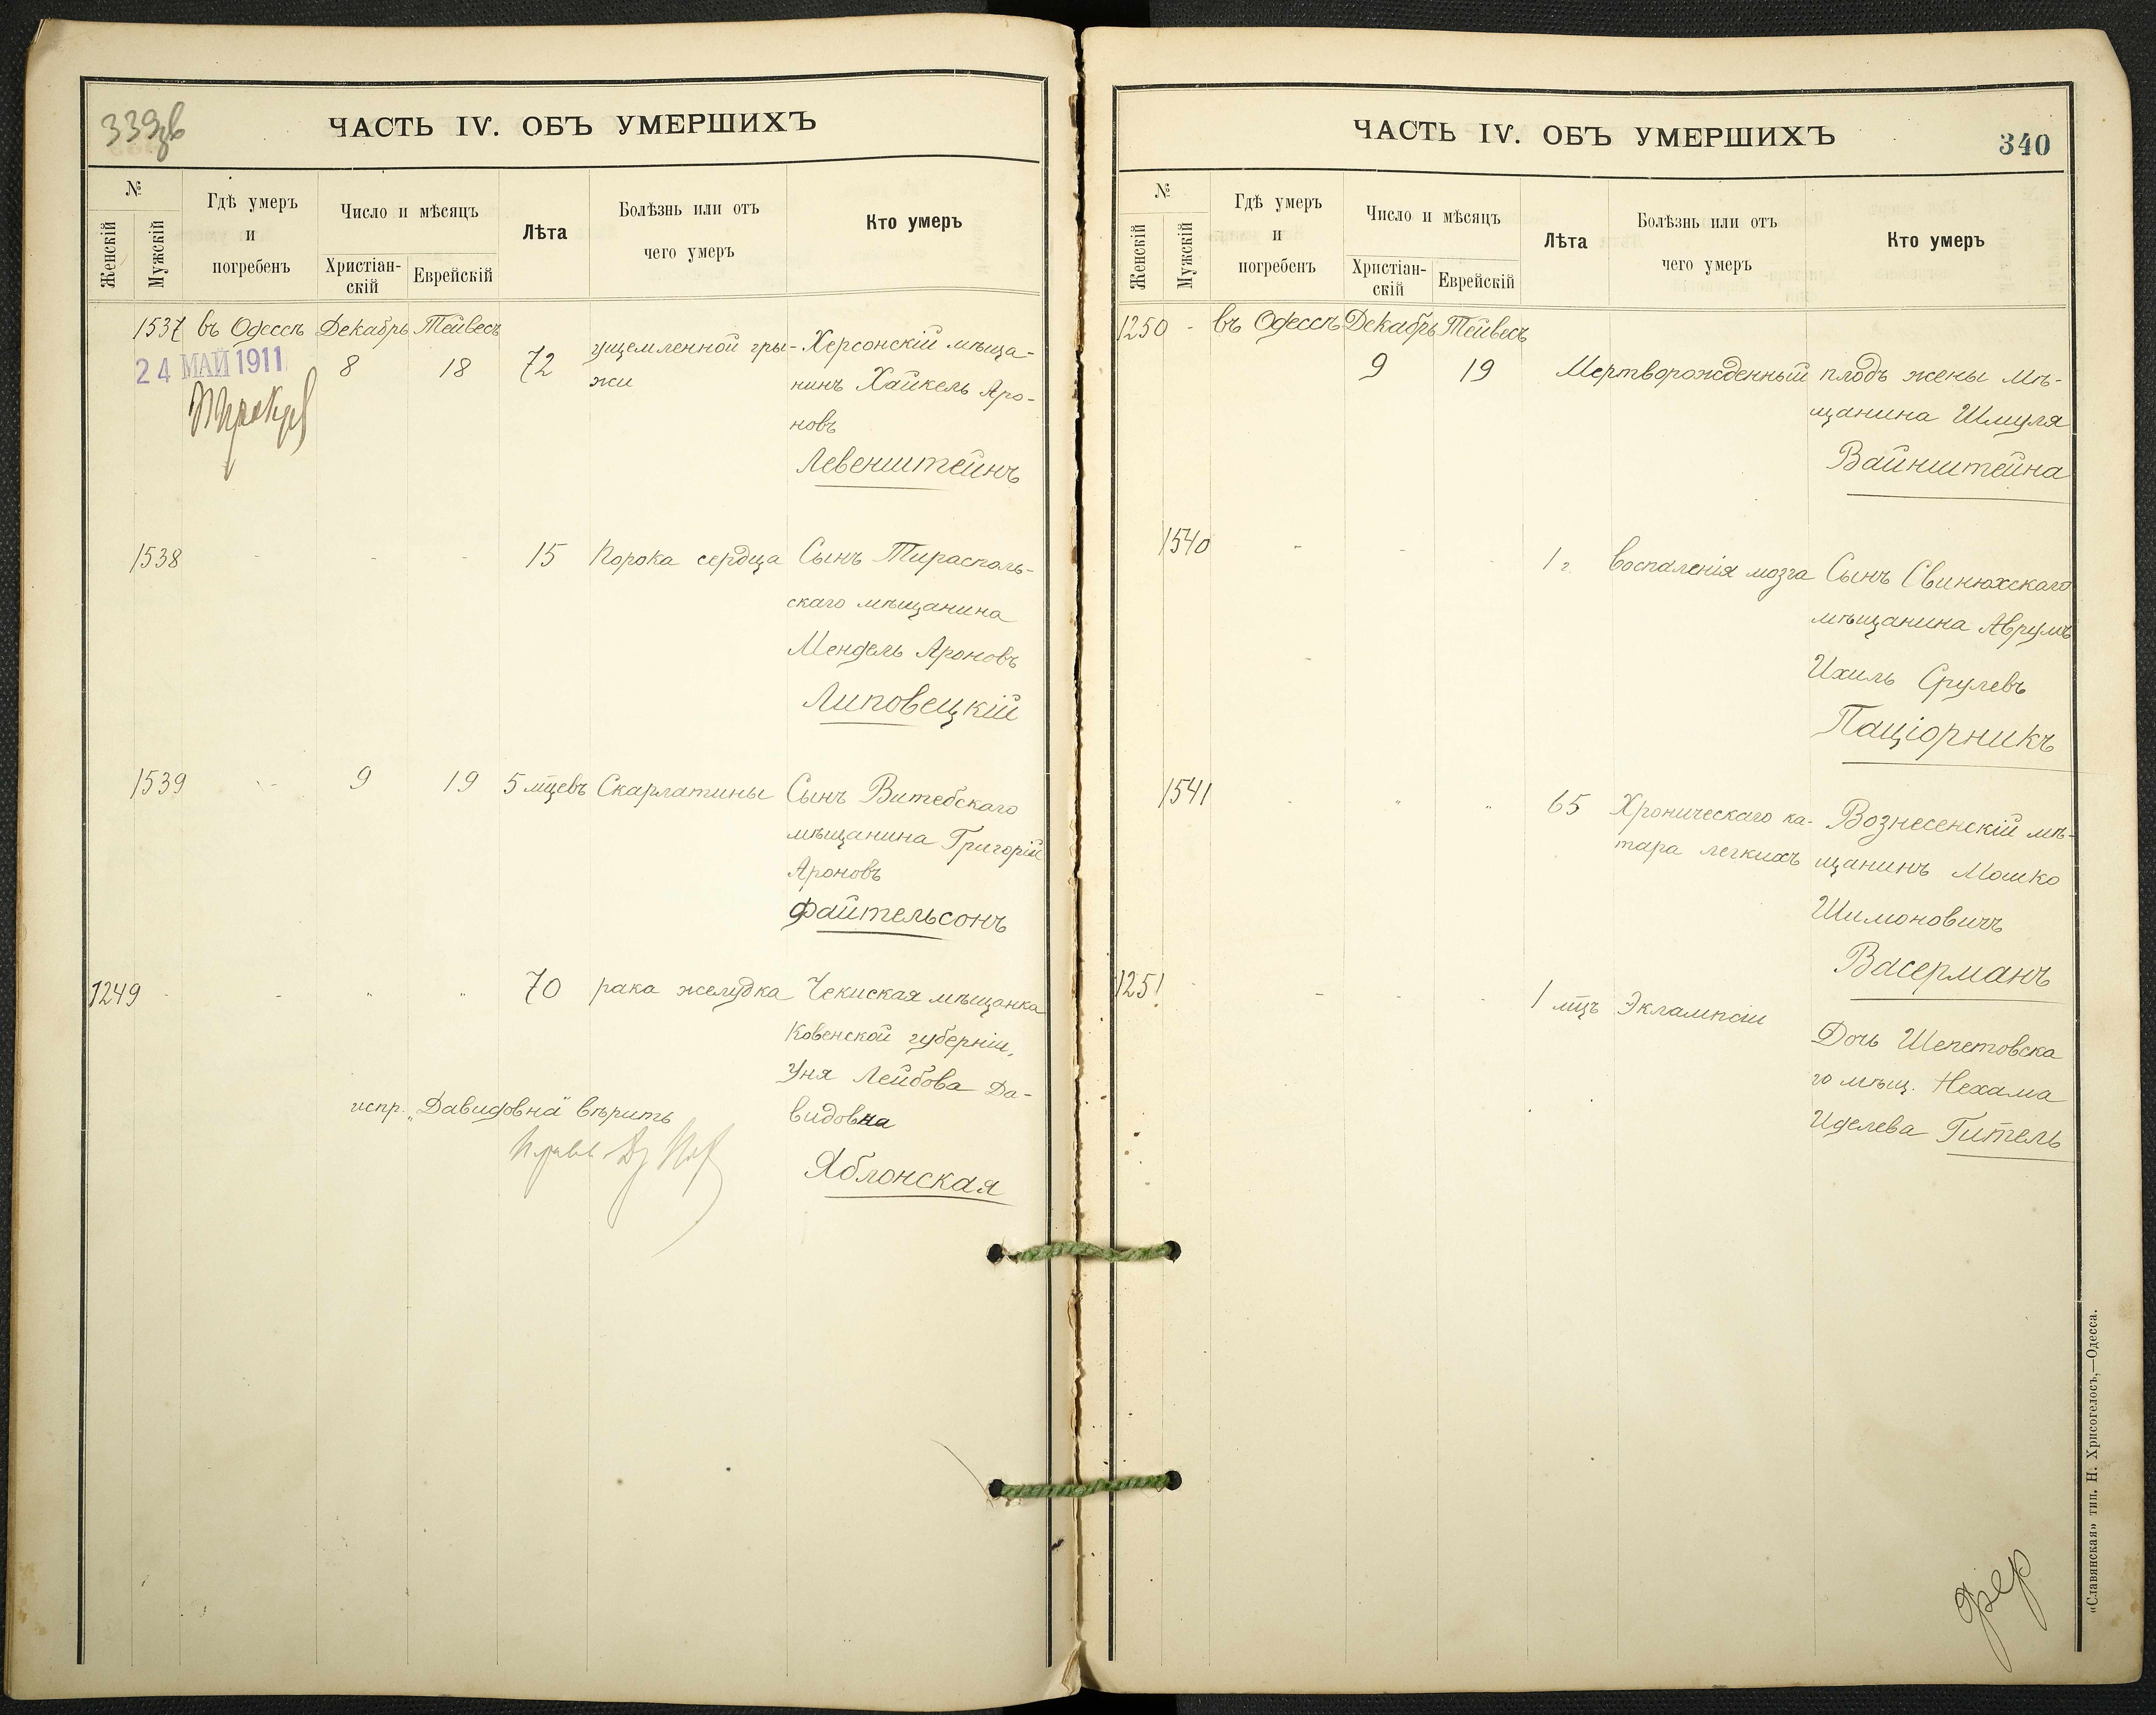 339 об
ЧАСТЬ IV. ОБЪ УМЕРШИХЪ
№
Женскій
Мужскій
Гдѣ умеръ
и
погребенъ
Число и мѣсяцъ
Христіан-
скій
Еврейскій
Лѣта
Болѣзнь или отъ
чего умеръ
Кто умеръ
1537 въ Одессѣ Декабрь Тейвесъ
24 МАЙ 1911
8 18 72 ущемленной гры-
жи
Херсонскій мѣща-
нинъ Хайкель Аро-
новъ
Левенштейнъ
1538 - - - 15 Порока сердца Сынъ Тирасполь-
скаго мѣщанина
Мендель Ароновъ
Липовецкій
1539 - 9 19 5 мѣцевъ Скарлатины Сынъ Витебскаго
мѣщанина Григорій
Ароновъ
Файтельсонъ
1249 - - " " 70 рака желудка Чекиская мѣщанка
Ковенской губерніи,
Уня Лейбова Да-
видовна
испр. „Давидовна" вѣрить
Яблонская
ЧАСТЬ IV. ОБЪ УМЕРШИХЪ
340
№
Женскій
Мужскій
Гдѣ умеръ
и
погребенъ
Число и мѣсяцъ
Христіан-
скій
Еврейскій
Лѣта
Болѣзнь или отъ
чего умеръ
Кто умеръ
1250 - въ Одессѣ Декабрь Тейвесъ
9 19 Мертворожденный плодъ жены мѣ-
щанина Шмуля
Вайнштейна
1540 - - 1 г. воспаленія мозга Сынъ Свинюхскаго
мѣщанина Аврумъ
Ихиль Срулевъ
Паціорникъ
1541 - " " 65 Хроническаго ка-
тара легкихъ
Вознесенскій мѣ-
щанинъ Мошко
Шимоновичъ
Васерманъ
1251 - - - - 1 мѣцъ Эклампсіи
Дочь Шепетовска
го мѣщ. Нехама
Иделева Гитель
«Славянская» тип. Н. Хрисогелосъ,—Одесса.